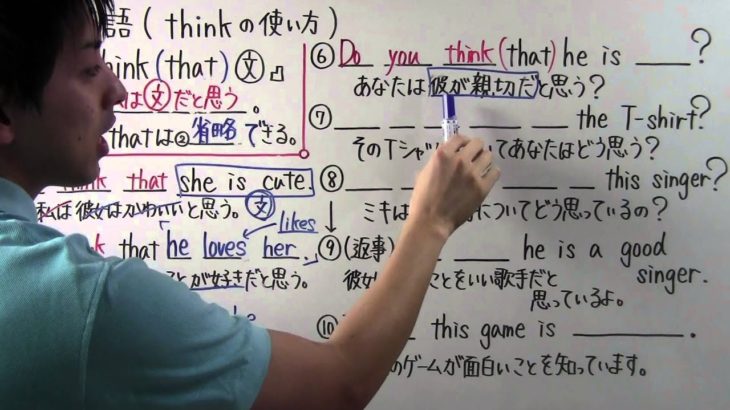 語(thinkの使い方)
think(that)文」
は文だと思う。
thatは②省略できる。
think that she is cute.
私は彼女はかわいいと思う。
文
likes
that he loves her.
ことが好きだと思う。
⑥Do you think (that) he is ____?
あなたは彼が親切だと思う?
⑦__ __ __ __ __ the T-shirt?
そのTシャツ いてあなたはどう思う?
⑧__ __ __ __ __ this singer?
ミキは についてどう思っているの?
⑨(返事) __ __ he is a good singer.
彼女 ことをいい歌手だと思っているよ。
⑩ __ this game is ____.
のゲームが面白いことを知っています。